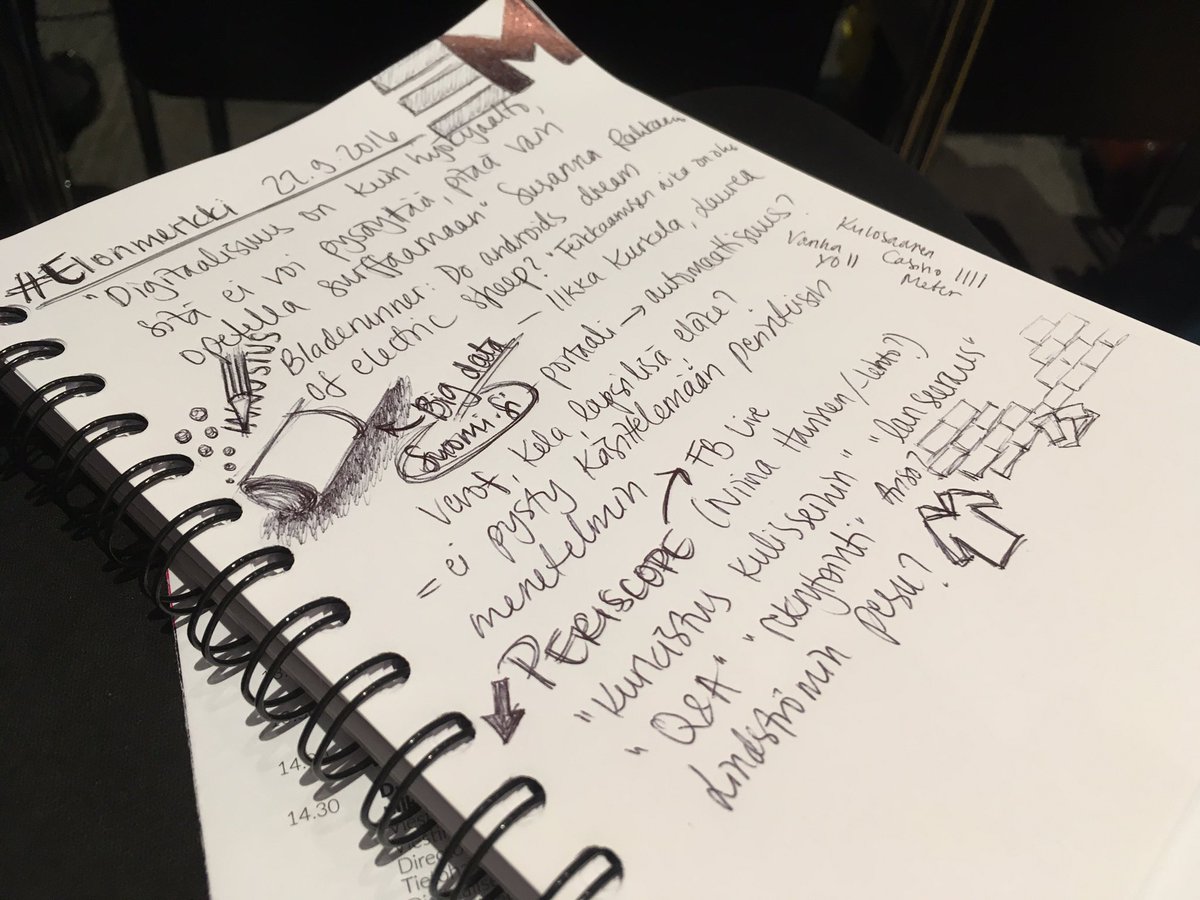 #Elonmerkki 22.9.2016
"Digitaalisuus on kuin hyökyaalto,
sitä ei voi pysäyttää, pitää vaan
opetella surffaamaan" Susanna
Bladerunner: Do androids dream
of electric sheep? "
aika on ohi
— Iikka Kurkela, Laurea
Big data
Suomi.fi portaali → automaattisuus?
verot, Kela lapsilisä eläke?
= ei pysty käsittelemään perinteisin
menetelmin
PERISCOPE → FB Live
(Niina Hauinen/-lehto?)
"Kurkistus kulisseihin" "lanseeraus"
"Q&A" "rekrytointi" Arvo?
Lindströmin pesu?
Kulosaaren
Casino ||||
Meter
Vanha
YO ||
14.30
Direc